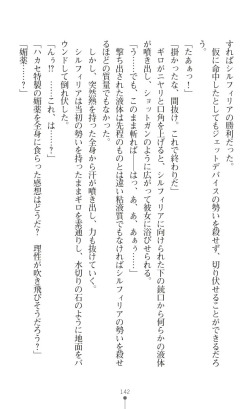 すればシルフィリアの勝利だった。
仮に命中したとしてもジェットデバイスの勢いを殺せず、切り伏せることができるだろ
う。
「たああっ！」
「掛かったな、間抜け。これで終わりだ」
ギロがニヤリと口角を上げると、シルフィリアに向けられた下の銃口から何らかの液体
が噴き出し、ショットガンのように広がって彼女に浴びせられる。
「う……でも、このまま斬れば――はっ、あ、ああぁっ……！」
撃ち出された液体は先程のものとは違い粘液質でもなければシルフィリアの勢いを殺せ
るほどの質量でもなかった。
しかし、突然熱を持った全身から汗が噴き出し、力も抜けていく。
シルフィリアは当初の勢いを持ったままギロを素通りし、水切りの石のように地面をバ
ウンドして倒れ伏した。
「んぅ!?　……これ、は……？」
「ハカセ特製の媚薬を全身に食らった感想はどうだ？　理性が吹き飛びそうだろう？」
「媚薬……？」
142